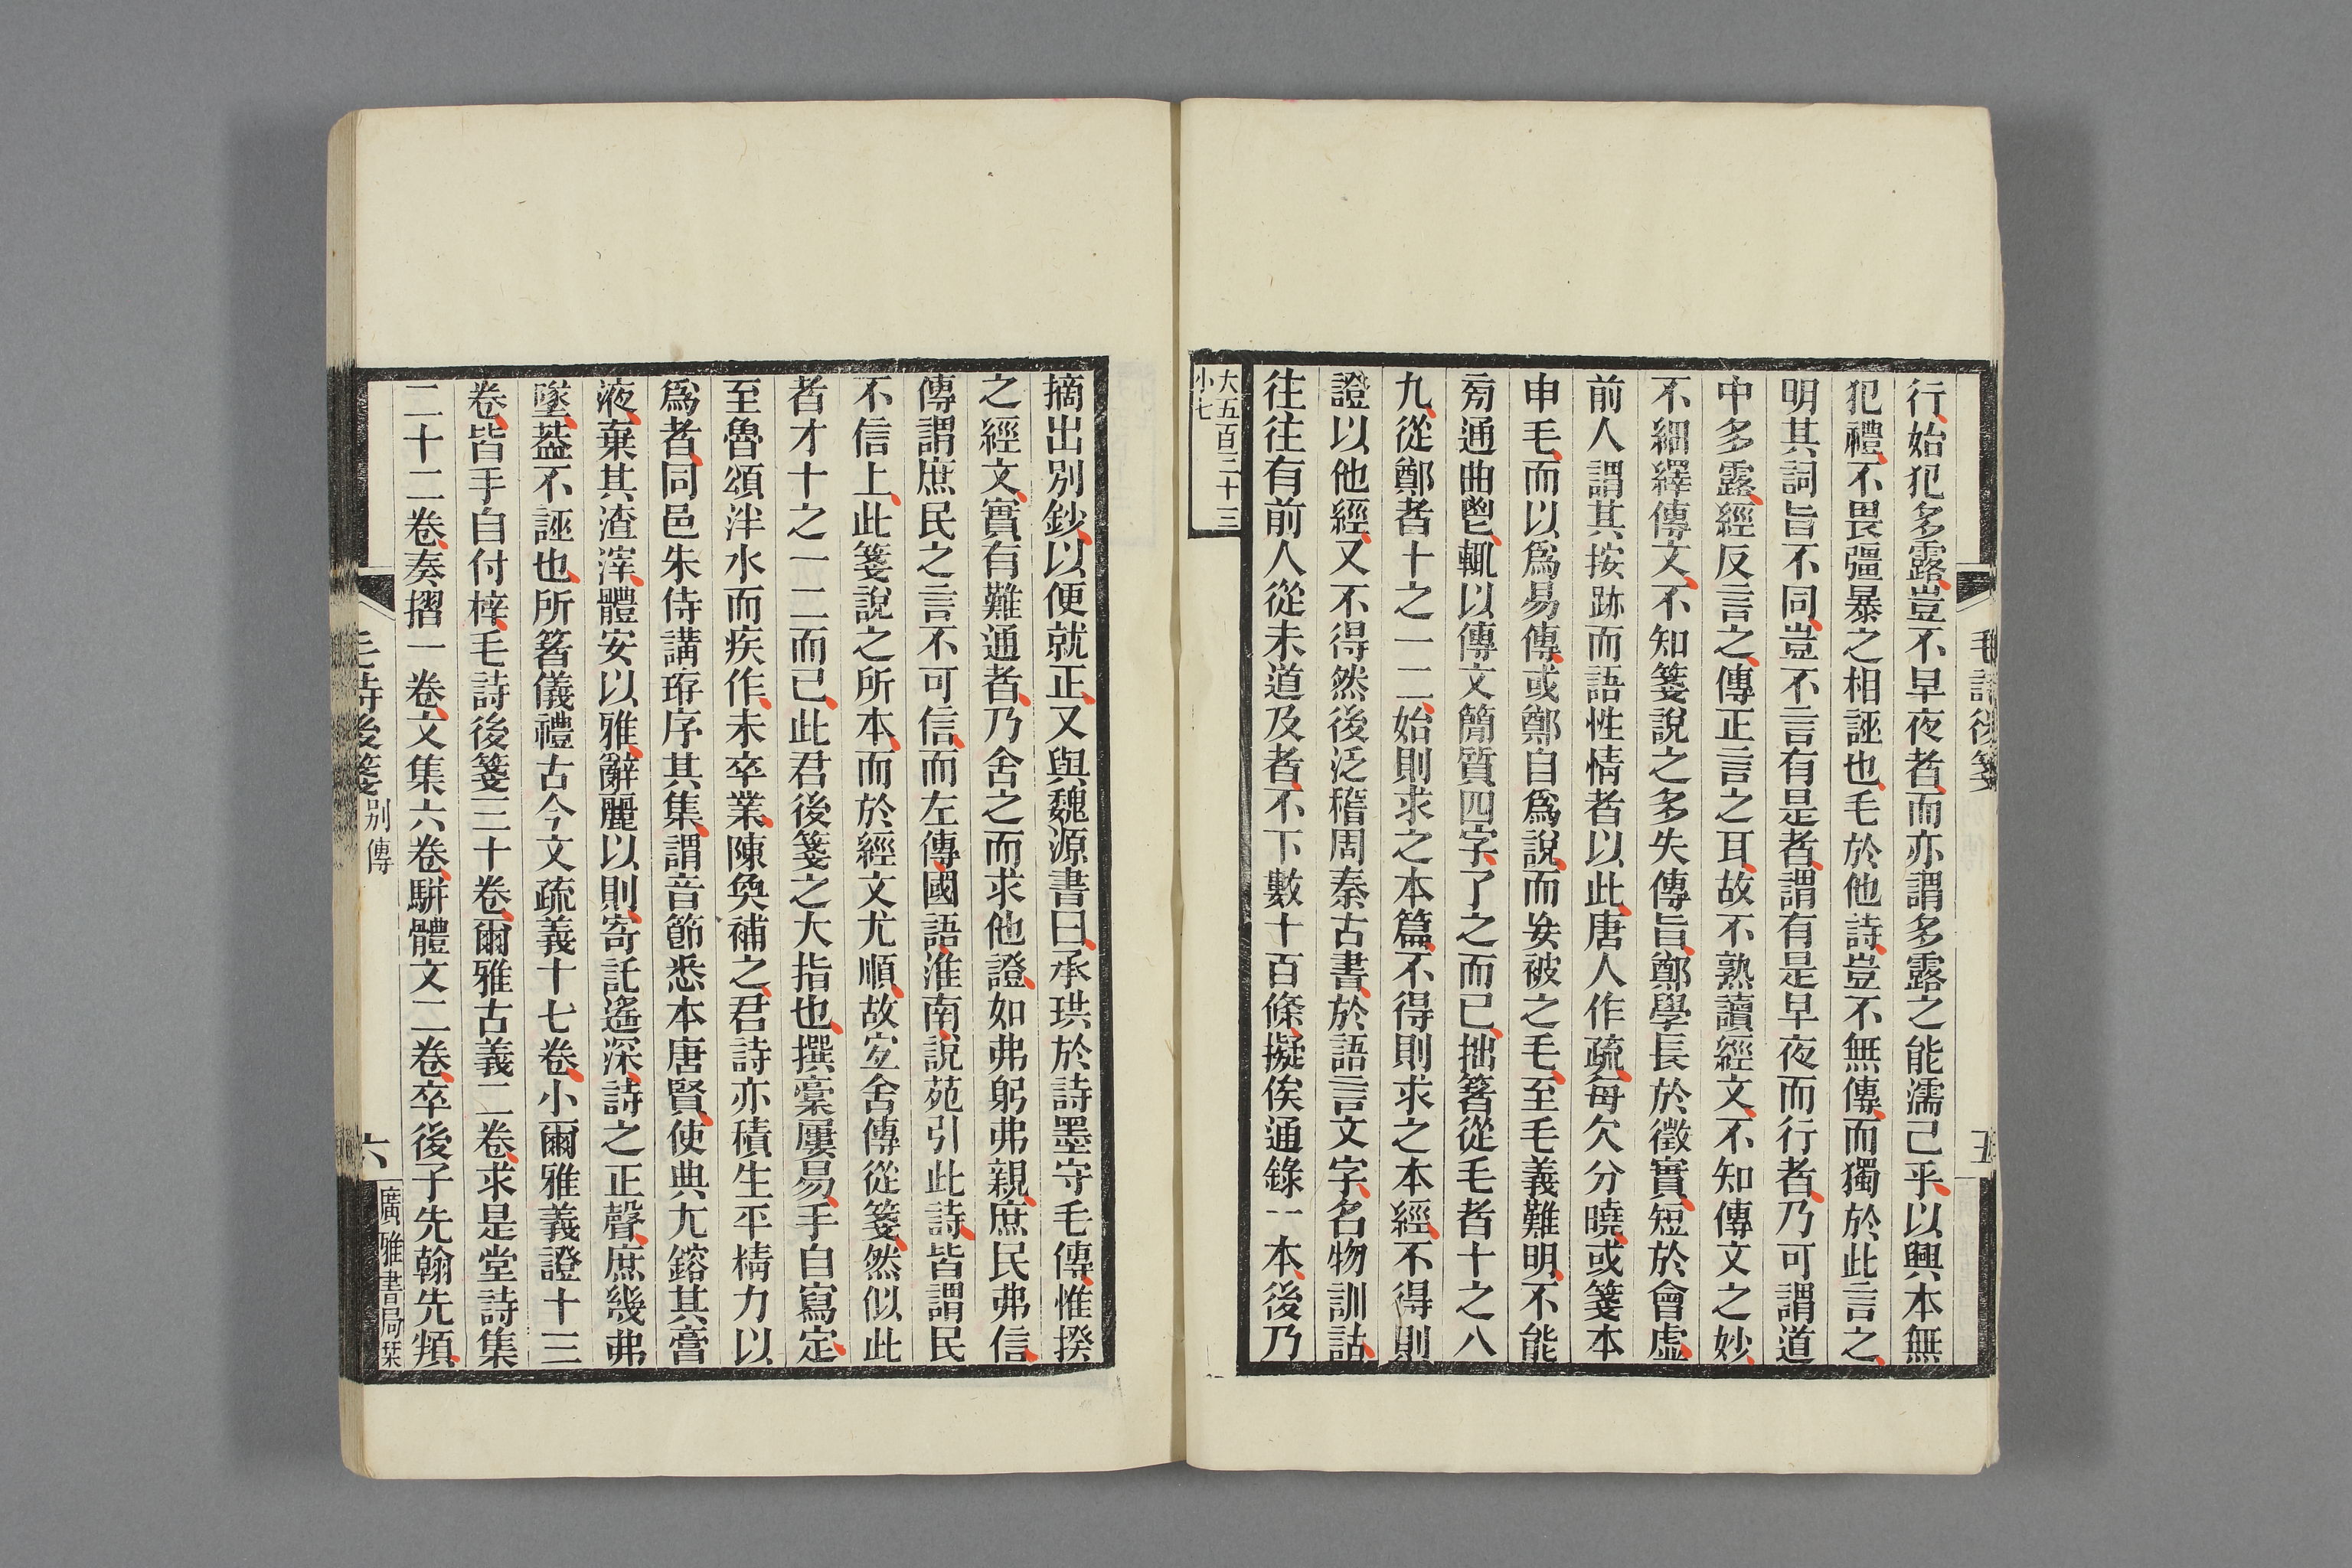 毛詩後箋
五
行始犯多露豈不早夜者而亦謂多露之能濡己乎以興本無
犯禮不畏彊暴之相誣也毛於他詩豈不無傳而獨於此言之
明其詞旨不同豈不言有是者謂有是早夜而行者乃可謂道
中多露經反言之傳正言之耳故不熟讀經文不知傳文之妙
不細繹傳文不知箋說之多失傳旨鄭學長於徵實短於會虛
前人謂其按跡而語性情者以此唐人作疏每欠分曉或箋本
申毛而以爲易傳或鄭自爲說而妄被之毛至毛義難明不能
旁通曲鬯輒以傳文簡質四字了之而已拙箸從毛者十之八
九從鄭者十之一二始則求之本篇不得則求之本經不得則
證以他經又不得然後泛稽周秦古書於語言文字名物訓詁
往往有前人從未道及者不下數十百條擬俟通錄一本後乃
大五百二十三
小七
摘出別鈔以便就正又與魏源書曰承珙於詩墨守毛傳惟揆
之經文實有難通者乃舍之而求他證如弗躬弗親庶民弗信
傳謂庶民之言不可信而左傳國語淮南說苑引此詩皆謂民
不信上此箋說之所本而於經文尤順故寍舍傳從箋然似此
者才十之一二而已此君後箋之大指也撰稾屢易手自寫定
至魯頌泮水而疾作未卒業陳奐補之君詩亦積生平精力以
爲者同邑朱侍講珔序其集謂音節悉本唐賢使典尤鎔其膏
液棄其渣滓體安以雅辭麗以則寄託遙深詩之正聲庶幾弗
墜葢不誣也所箸儀禮古今文疏義十七卷小爾雅義證十三
卷皆手自付梓毛詩後箋三十卷爾雅古義二卷求是堂詩集
二十二卷奏摺一卷文集六卷駢體文二卷卒後子先翰先頫
毛詩後箋 別傳
六
廣雅書局栞